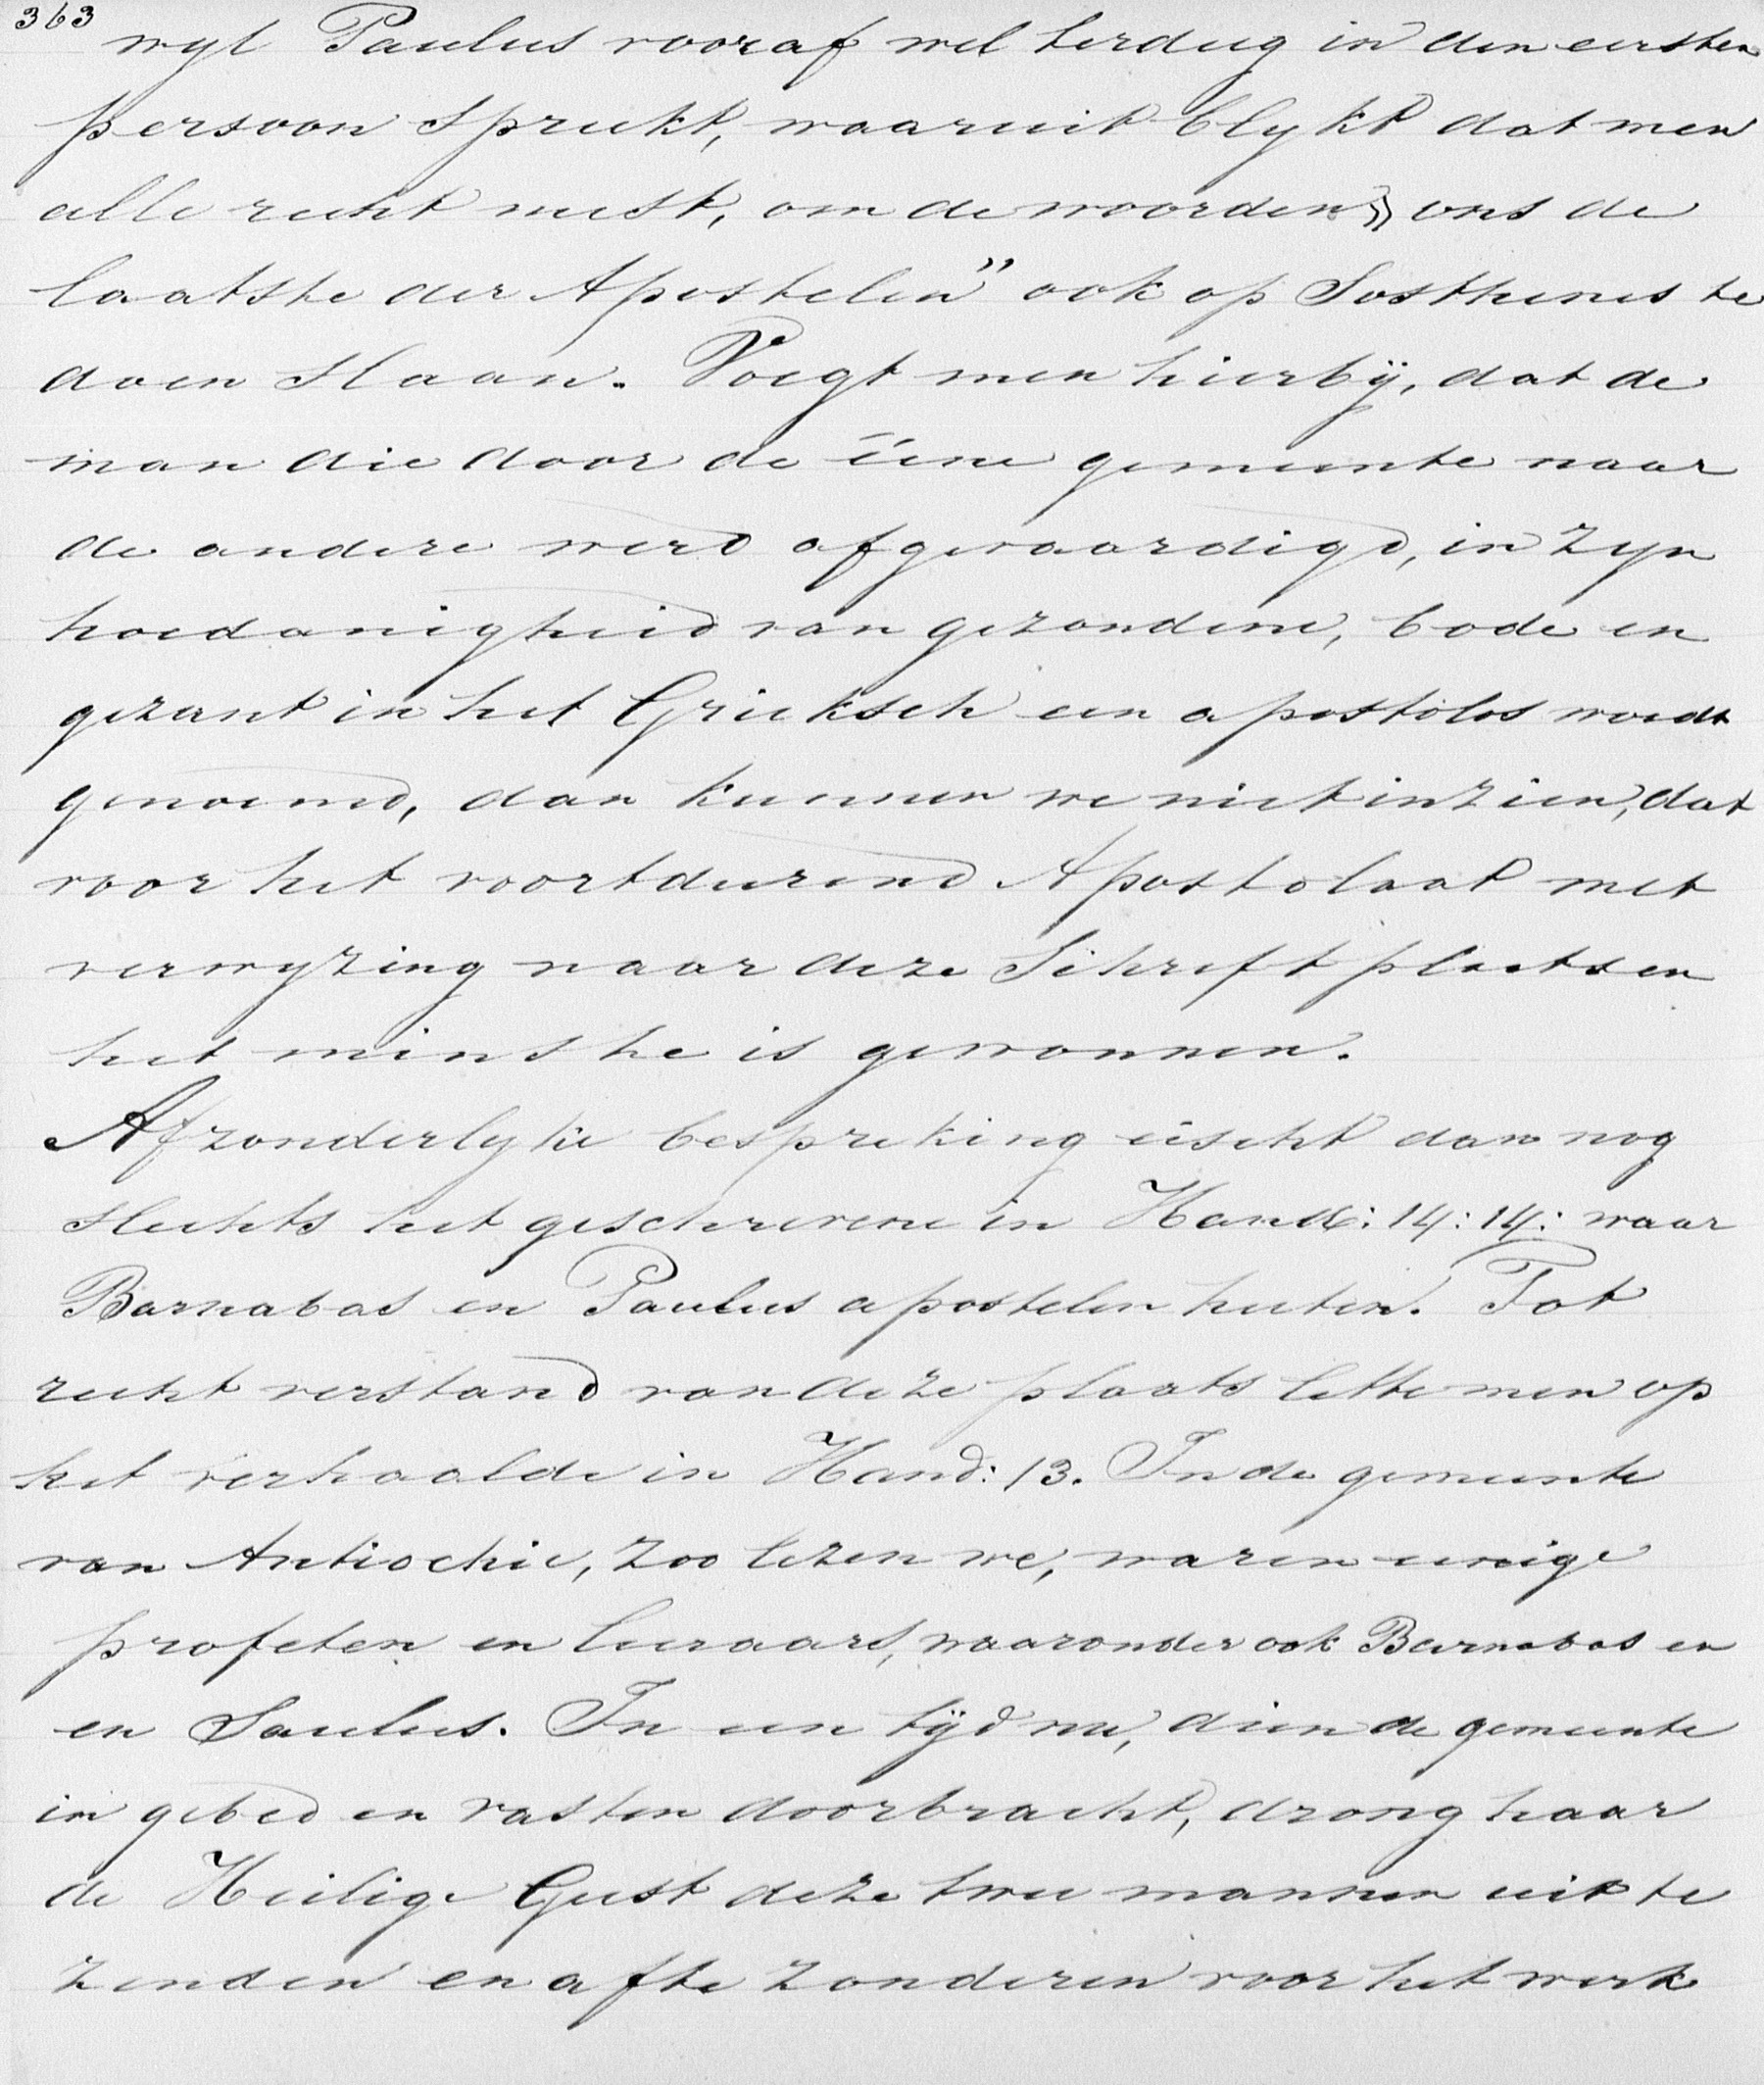 363 wyl Paulus vooraf wel terdeeg in den eersten
persoon spreekt, waaruit blykt dat men
alle recht mist, om de woorden „ ons de
laatste der Apostelen” ook op Sosthenes te
doen slaan. Voegt men hierbÿ, dat de
man die door de ééne gemeente naar
de andere werd afgevaardigd, in zyn
hoedanigheid van gezondene, bode en
gezant in het Grieksch een apostolos wordt
genoemd, dan kunnen we niet inzien, dat
voor het voortdurend Apostolaat met
verwyzing naar deze Schriftplaatsen
het minste is gewonnen.
Afzonderlyke bespreking eischt dan nog
slechts het geschrevene in Hand: 14:14: waar
Barnabas en Paulus apostelen heeten. Tot
recht verstand van deze plaats lette men op
het verhaalde in Hand: 13. In de gemeente
van Antiochie, zoo lezen we, waren eenige
profeten en leeraars, waaronder ook Barnabas en
en Saulus. In een tÿd nu, dien de gemeente
in gebed en vasten doorbracht, drong haar
de Heilige Geest deze twee mannen uit te
zenden en af te zonderen voor het werk